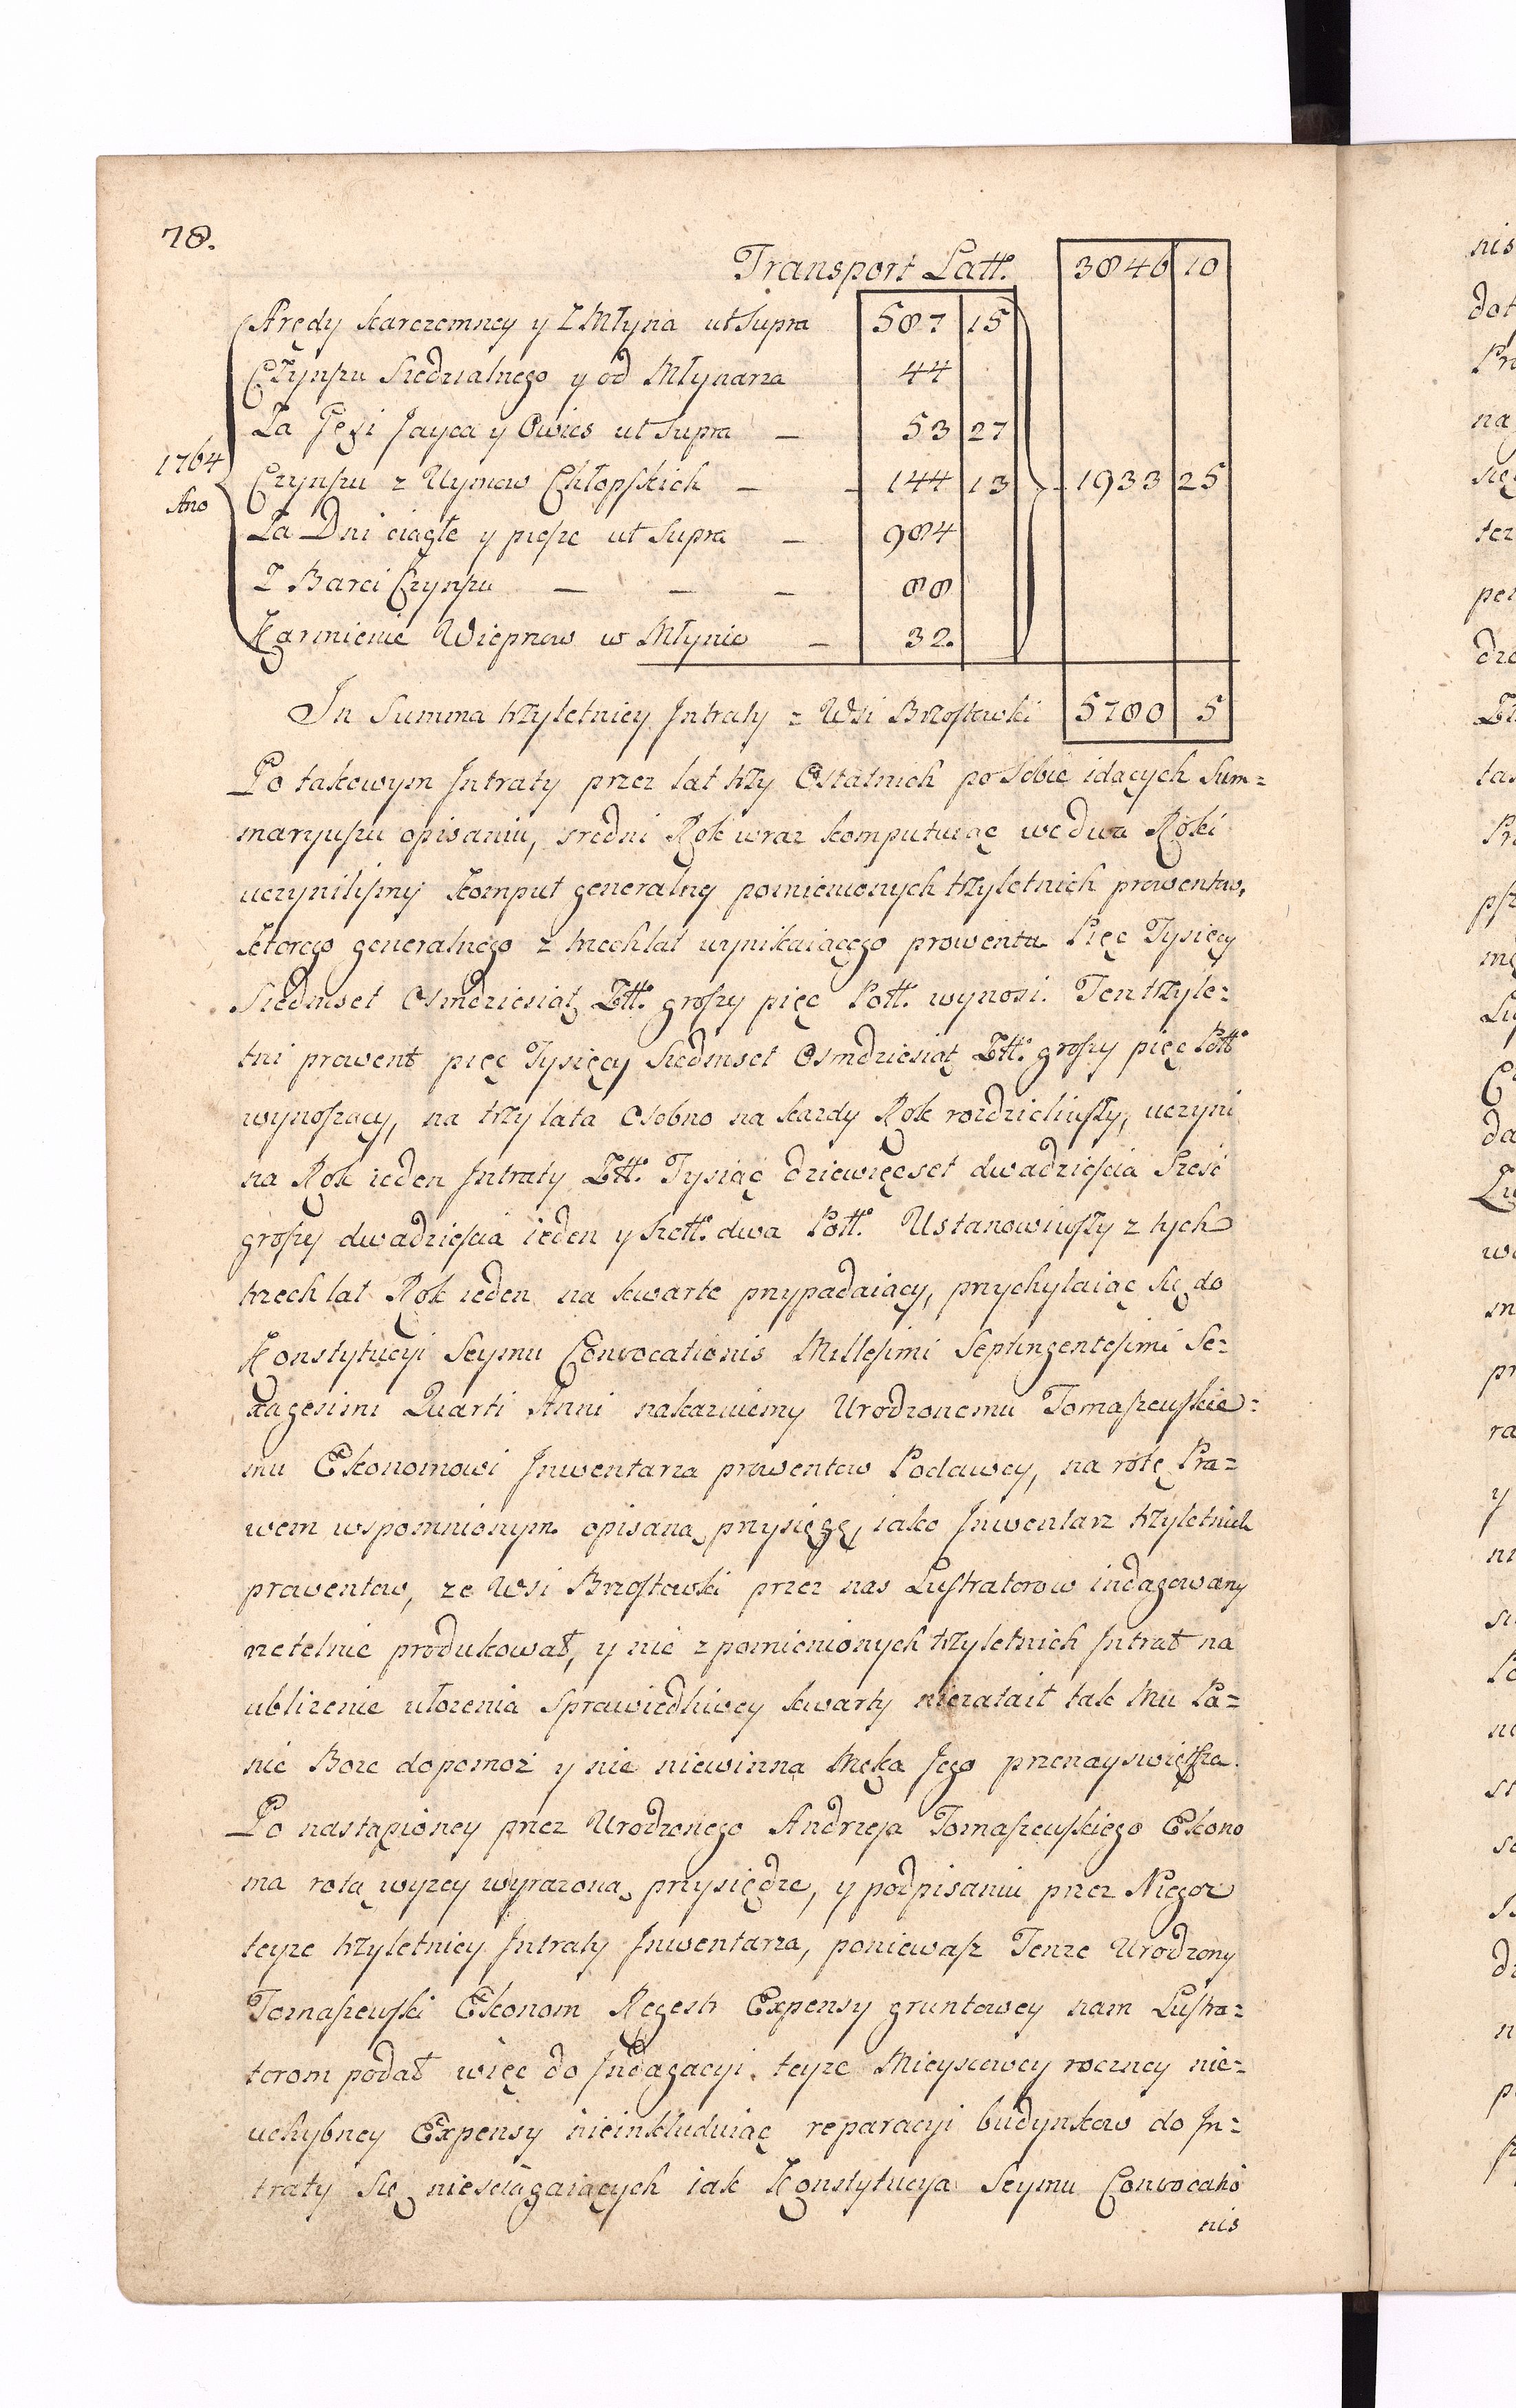 78.
Transport Latt. 3846 10
Arędy karczemney y z Młyna ut Supra 587 15
Czynszu Siedzialnego y od Młynarza 44
Za Gęsi Jayca y Owies ut Supra — 53 27
1764 Czynszu z Uymow Chłopskich — — 144 13 — 1933 25
Ano
Za Dni ciągłe y piesze ut Supra — 984
Z Barci Czynszu — — — 88
Karmienie Wieprzow w Młynie — 32.
In Summa trzyletniey Intraty z Wsi Brzostowki 5780 5
Po takowym Intraty przez lat trzy Ostatnich po Sobie idących Sum=
maryuszu opisaniu, sredni Rok wraz komputuiąc we dwa Roki
uczynilismy komput generalny pomienionych trzyletnich prowentow,
ktorego generalnego z trzech lat wynikaiącego prowentu Pięc Tysięcy
Siedmset Osmdziesiąt Złł. groszy pięc Poll. wynosi. Ten trzyle=
tni prowent pięc Tysięcy Siedmset Osmdziesiąt Złł. groszy pięc Poll
wynoszący, na trzy lata Osobno na kazdy Rok rozdzieliwszy, uczyni
na Rok ieden Intraty Złł. Tysiąc dziewięcset dwadziescia Szesć
groszy dwadziescia ieden y szell. dwa Poll. Ustanowiwszy z tych
trzech lat Rok ieden na kwarte przypadaiący, przychylaiąc się do
Konstytucyi Seymu Convocationis Millesimi Septingentesimi Se=
xagesimi Quarti Anni nakazuiemy Urodzonemu Tomaszewskie=
mu Ekonomowi Inwentarza prowentow Podawcy, na rotę Pra=
wem wspomnionym opisaną przysięgę, iako Inwentarz trzyletnich
prowentow, ze Wsi Brzostowki przez nas Lustratorow indagowany
rzetelnie produkował, y nic z pomienionych trzyletnich Intrat na
ublizenie ułozenia Sprawiedliwey kwarty niezataił tak Mu Pa=
nie Boze dopomoz y nie niewinna Męka Jego przenayswiętsza.
Po nastąpioney przez Urodzonego Andrzeja Tomaszewskiego Ekono
ma rotą wyzey wyrazoną przysiędze, y podpisaniu przez Niego
teyze trzyletniey Intraty Inwentarza, poniewasz Tenze Urodzony
Tomaszewski Ekonom Regestr Expensy gruntowey nam Lustra=
torom podał więc do Indagacyi teyze Mieyscowey roczney nie=
uchybney Expensy nieinkluduiąc reparacyi budynkow do In=
traty Się niesciągaiących iak Konstytucya Seymu Convocatio
nis